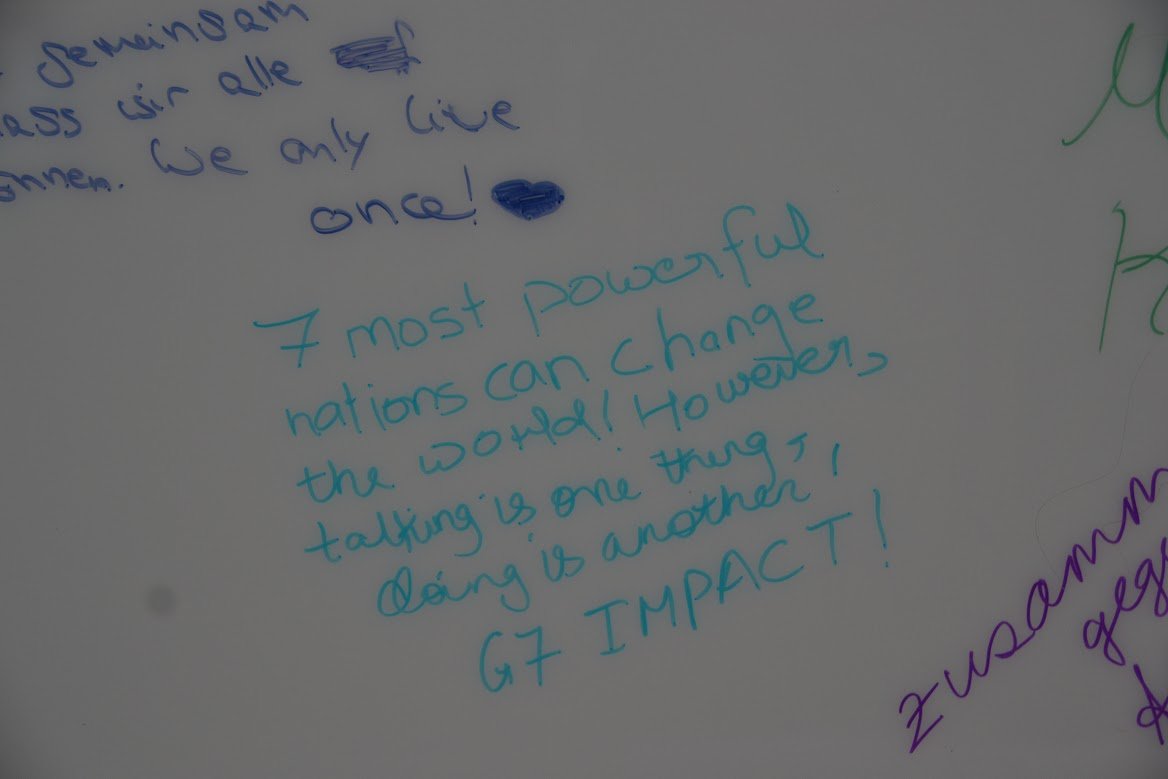 Gemeinsam
wir alle
We only live
once!
7 most powerful
nations can change
the world! However,
talking is one thing,
doing is another,!
G7 IMPACT!